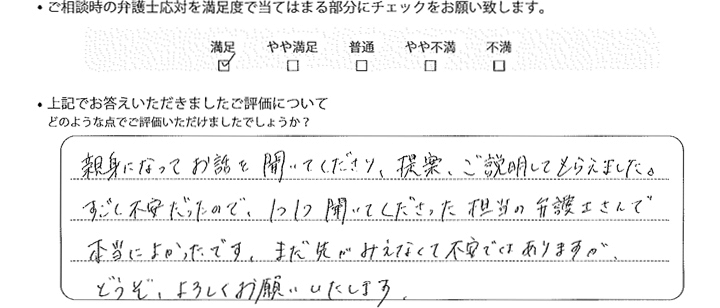 • ご相談時の弁護士応対を満足度で当てはまる部分にチェックをお願い致します。
満足 やや満足 普通 やや不満 不満
☑ □ □ □ □
• 上記でお答えいただきましたご評価について
どのような点でご評価いただけましたでしょうか？
親身になってお話を聞いてくださり、提案、ご説明してもらえました。
すごく不安だったので、1つ1つ聞いてくださった担当の弁護士さんで
本当によかったです。まだ先がみえなくて不安ではありますが、
どうぞ、よろしくお願いいたします。